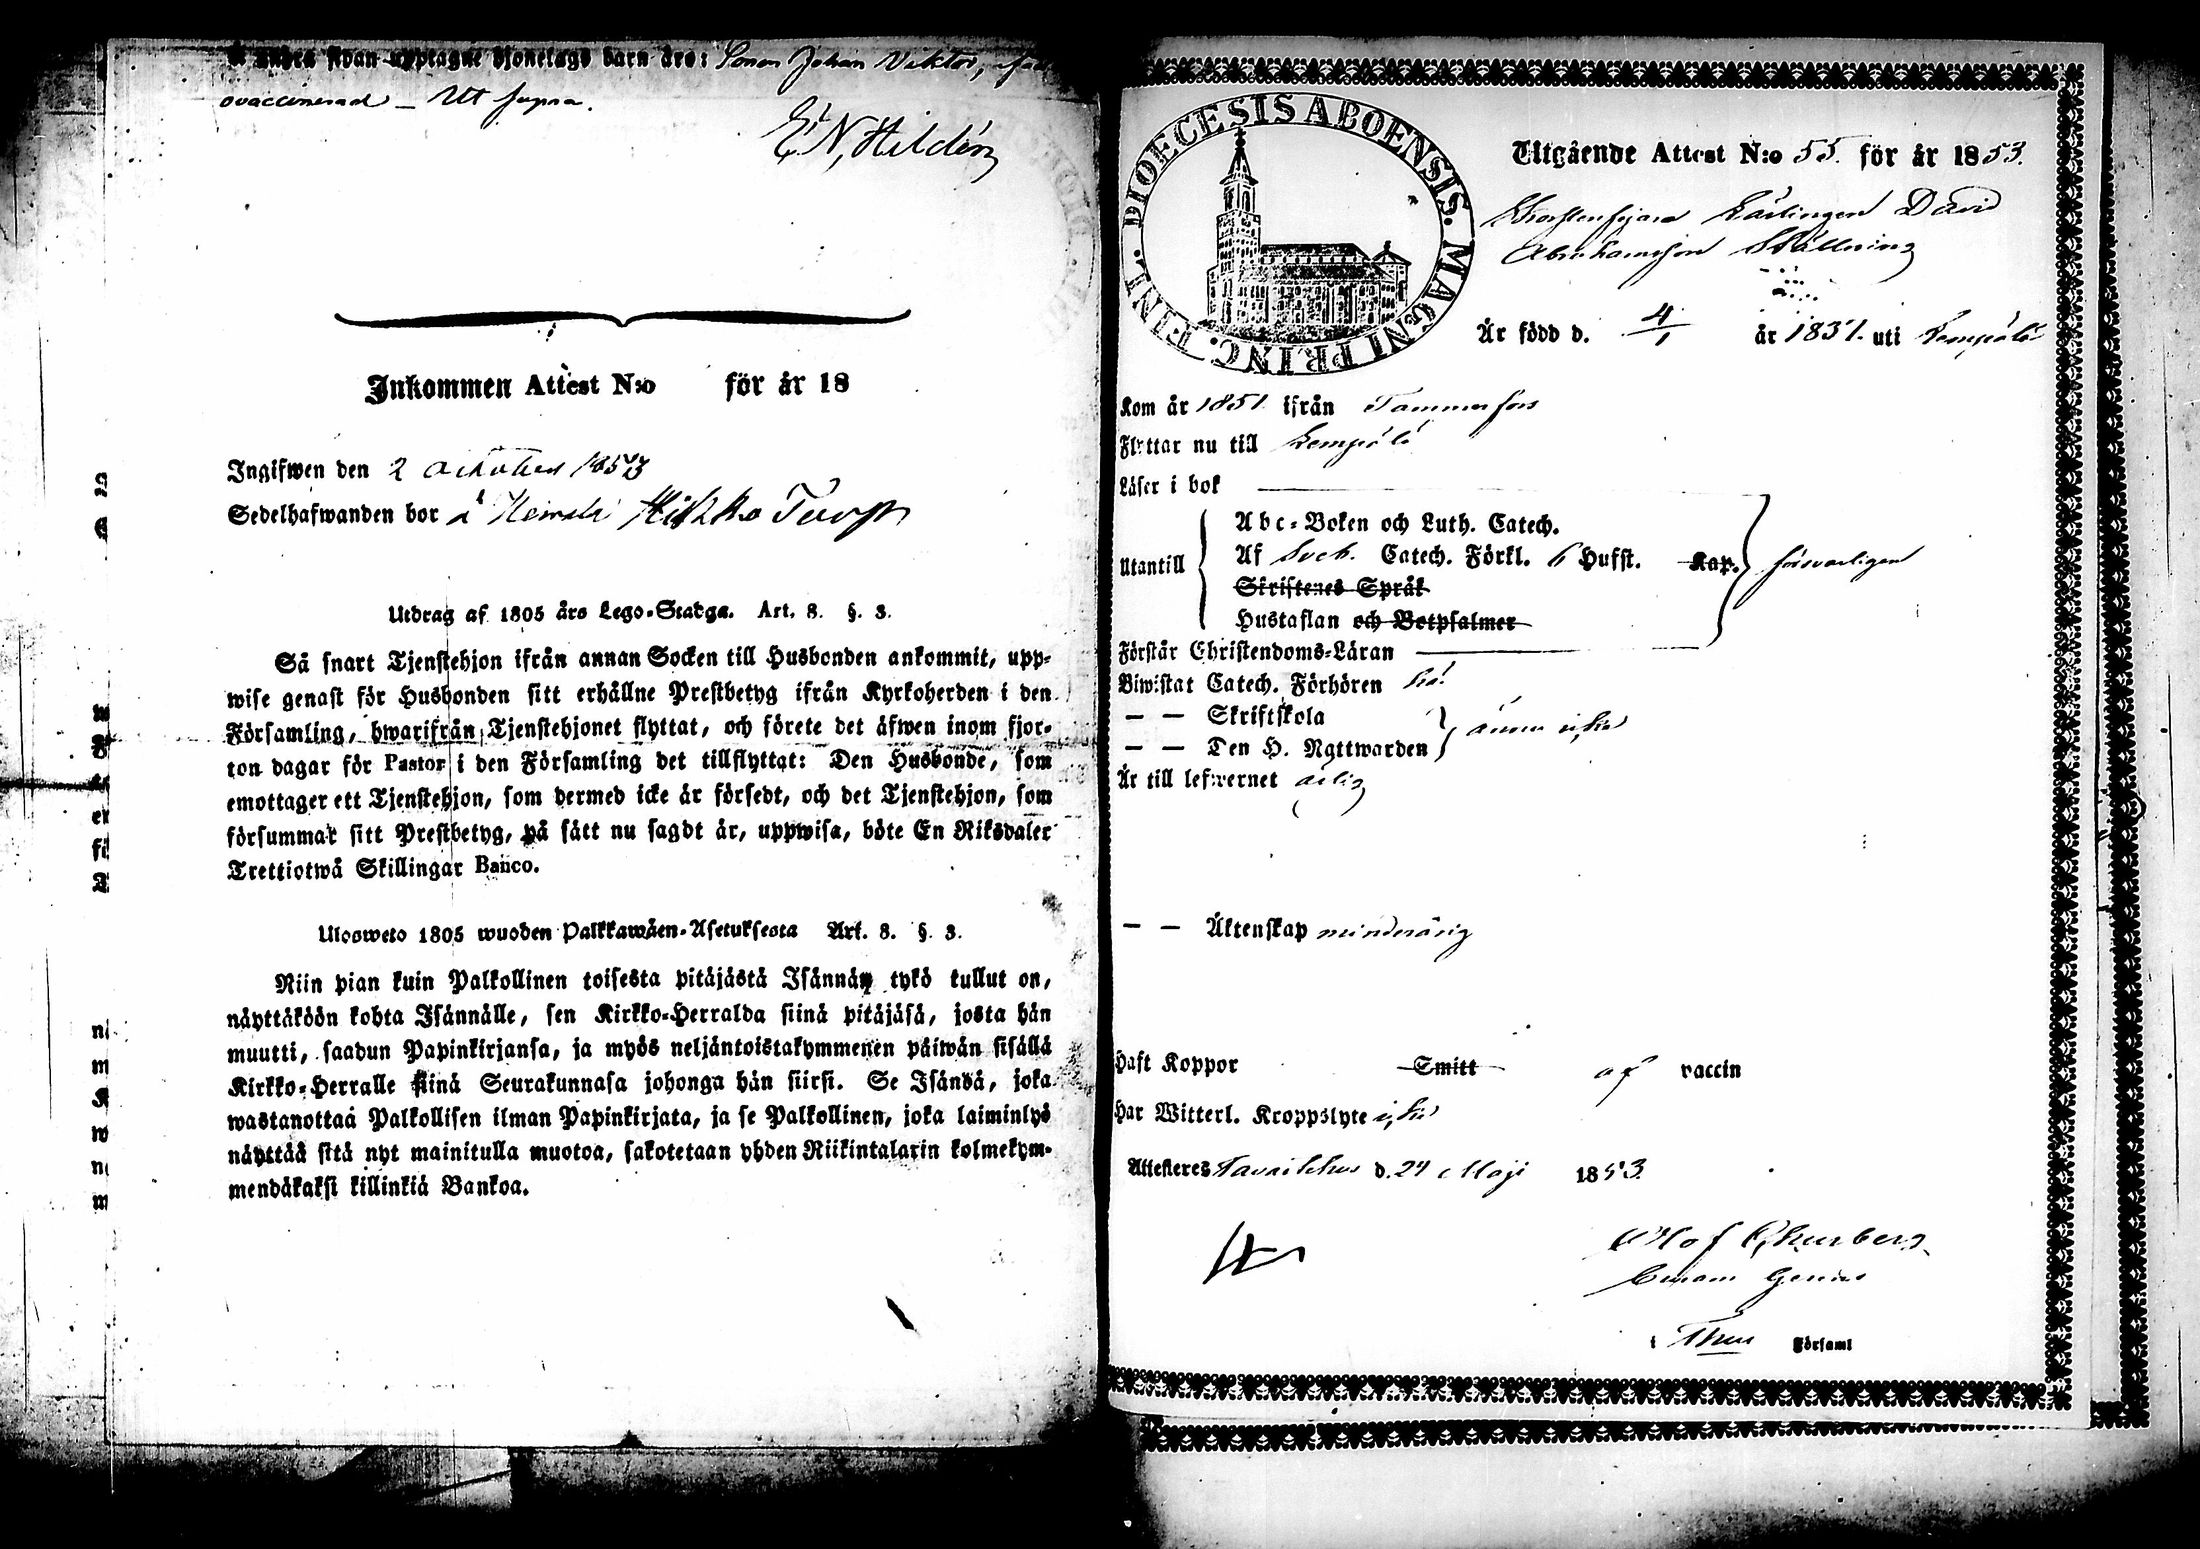 å andra sidan upptagne Hjonelags barn äro: Sonen Johan Viktor,
ovaccinerad — Ut supra.
E. N. Hildén
Inkommen Attest N:o för år 18
Ingifwen den 2 october 1853
Sedelhafwanden bor å Mikko Torp
Utdrag af 1805 års Lego-Stadga. Art. 8. §. 3.
Så snart Tjenstehjon ifrån annan Socken till Husbonden ankommit, upp-
wise genast för Husbonden sitt erhållne Prestbetyg ifrån Kyrkoherden i den
Församling, hwarifrån Tjenstehjonet flyttat, och förete det äfwen inom fjor-
ton dagar för Pastor i den Församling det tillflyttat: Den Husbonde, som
emottager ett Tjenstehjon, som dermed icke är försedt, och det Tjenstehjon, som
försummar sitt Prestbetyg, på sätt nu sagdt är, uppwisa, böte En Riksdaler
Trettiotwå Skillingar Banco.
Ulosweto 1805 wuoden Palkkawäen-Asetuksesta Art. 8. §. 3.
Niin pian kuin Palkollinen toisesta pitäjästä Isännän tykö tullut on,
näyttäköön kohta Isännälle, sen Kirkko-Herralda siinä pitäjäsä, josta hän
muutti, saadun Papinkirjansa, ja myös neljäntoistakymmenen päiwän sisällä
Kirkko-Herralle siinä Seurakunnasa johonga hän siirsi. Se Isändä, joka
wastanottaa Palkollisen ilman Papinkirjata, ja se Palkollinen, joka laiminlyö
näyttää sitä nyt mainitulla muotoa, sakotetaan yhden Riikintalarin kolmekym-
mendäkaksi killinkiä Bankoa.
DIOECESIS ABOENSIS. MAGNI PRINC. FINL.
Utgående Attest N:o 55. för år 1853.
Skorstensfejare Lärlingen David
Abrahamsson Ställning
Är född d. 4/1 år 1837. uti Lempälä
Kom år 1851 ifrån Tammerfors
Flyttar nu till Lempälä
Läser i bok
Utantill
Abc-Boken och Luth. Catech.
Af Sveb. Catech. Förkl. 6 Hufst. Kap. försvarligen
Skriftenes Språk
Hustaflan och Botpsalmer
Förstår Christendoms-Läran
Biwistat Catech. Förhören
— — Skriftskola
— — Den H. Nattwarden ännu icke
Är till lefwernet ärlig
— — Äktenskap minderårig
Haft Koppor Smitt af vaccin
Har Witterl. Kroppslyte icke
Attesteres Tavastehus d. 24 Maji 1853.
Olof
i Thus Församl